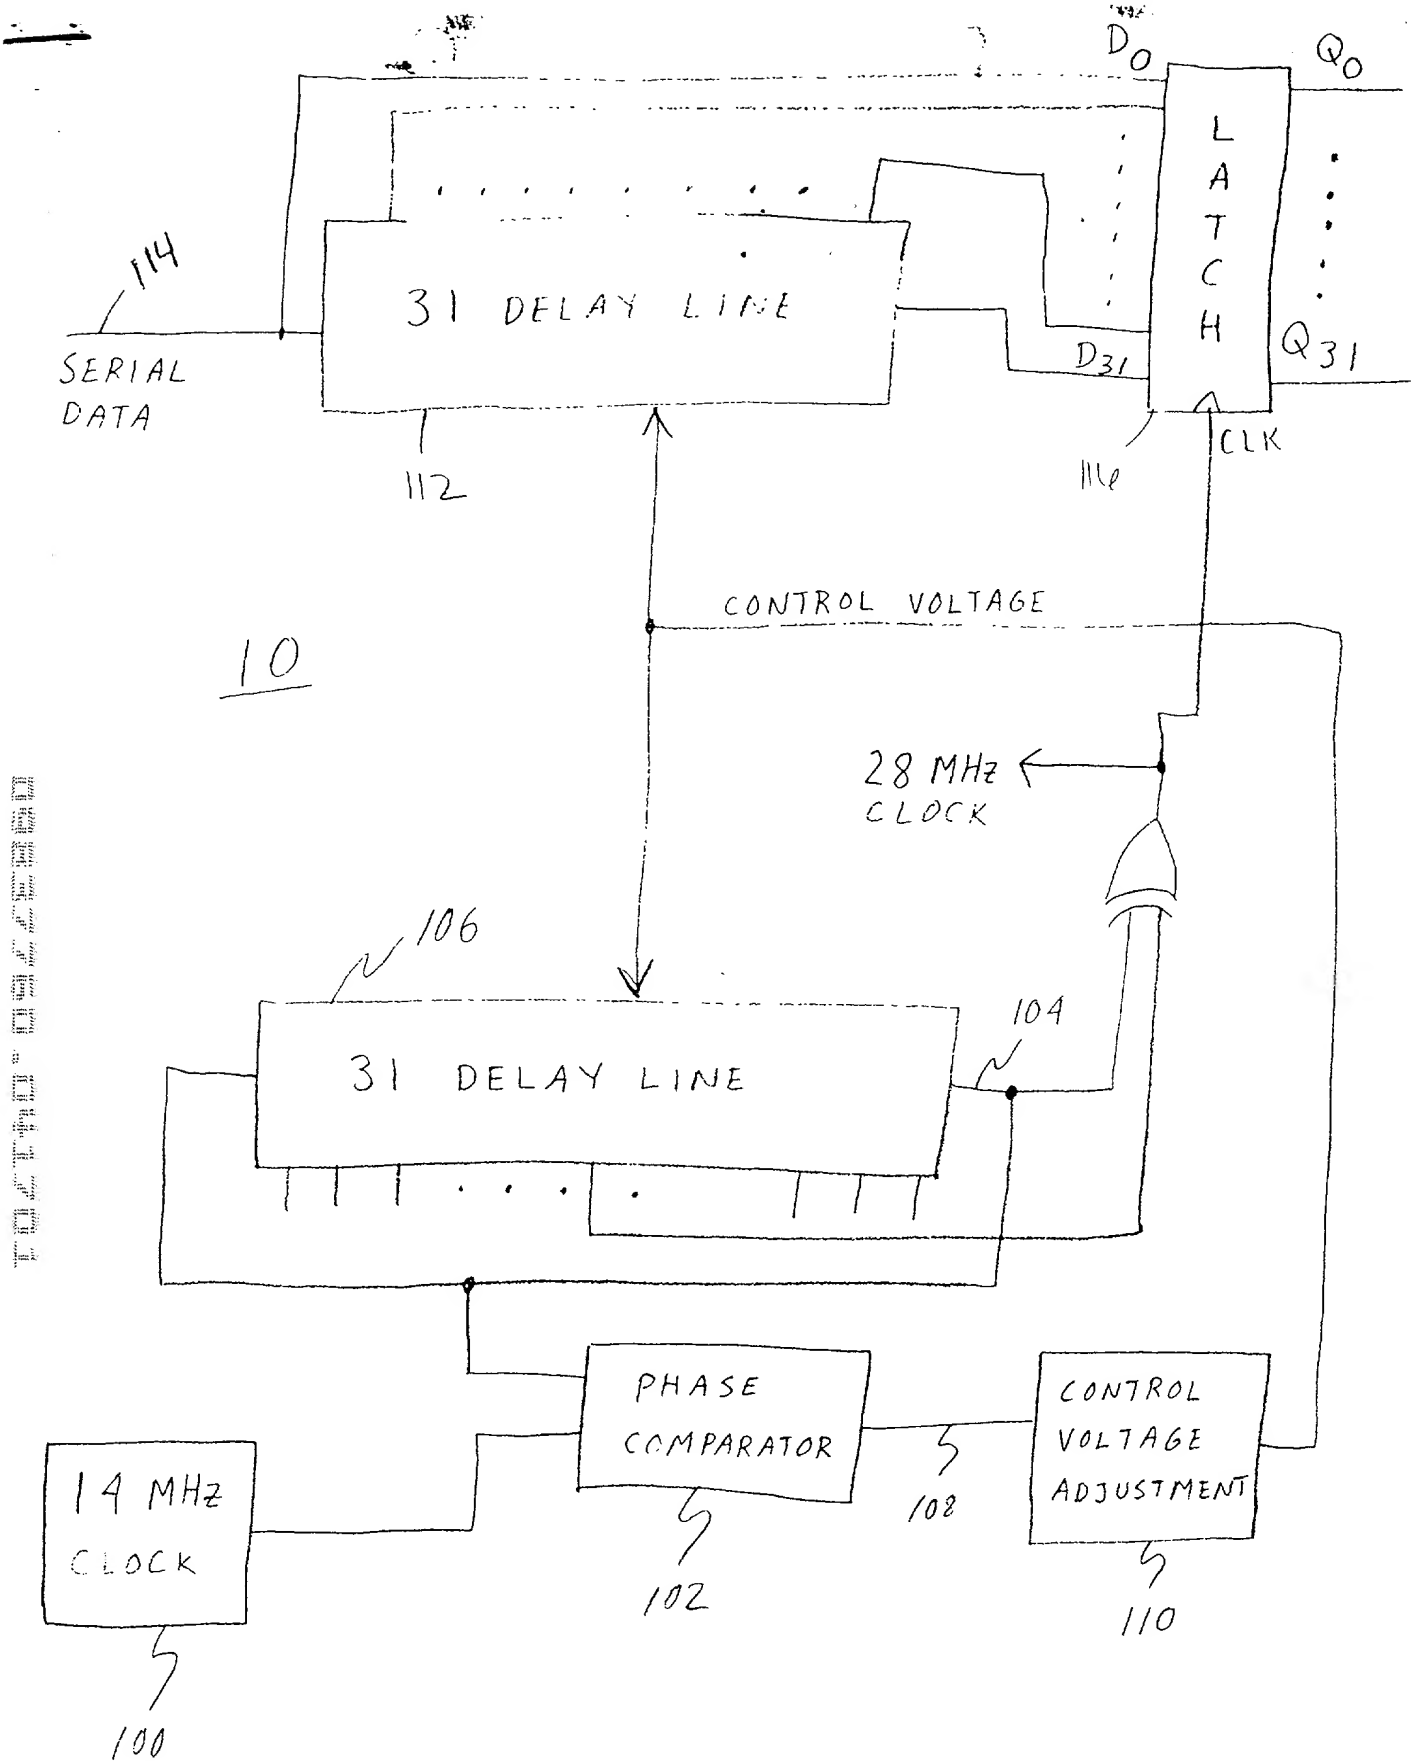 D0
Q0
LATCH
114
31 DELAY LINE
SERIAL
DATA
D31
Q31
CLK
112
116
CONTROL VOLTAGE
10
28 MHz
CLOCK
106
104
31 DELAY LINE
PHASE
COMPARATOR
CONTROL
VOLTAGE
ADJUSTMENT
14 MHz
CLOCK
108
102
110
100
09837760.041701